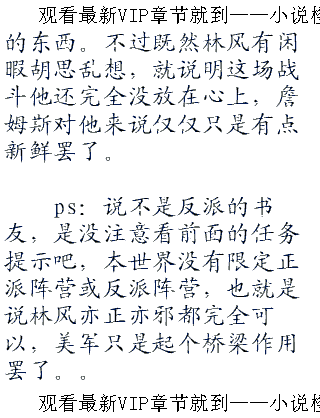 观看最新VIP章节就到——小说检
的东西。不过既然林风有闲
暇胡思乱想，就说明这场战
斗他还完全没放在心上，詹
姆斯对他来说仅仅只是有点
新鲜罢了。
ps：说不是反派的书
友，是没注意看前面的任务
提示吧，本世界没有限定正
派阵营或反派阵营，也就是
说林风亦正亦邪都完全可
以，美军只是起个桥梁作用
罢了。。
观看最新VIP章节就到——小说检